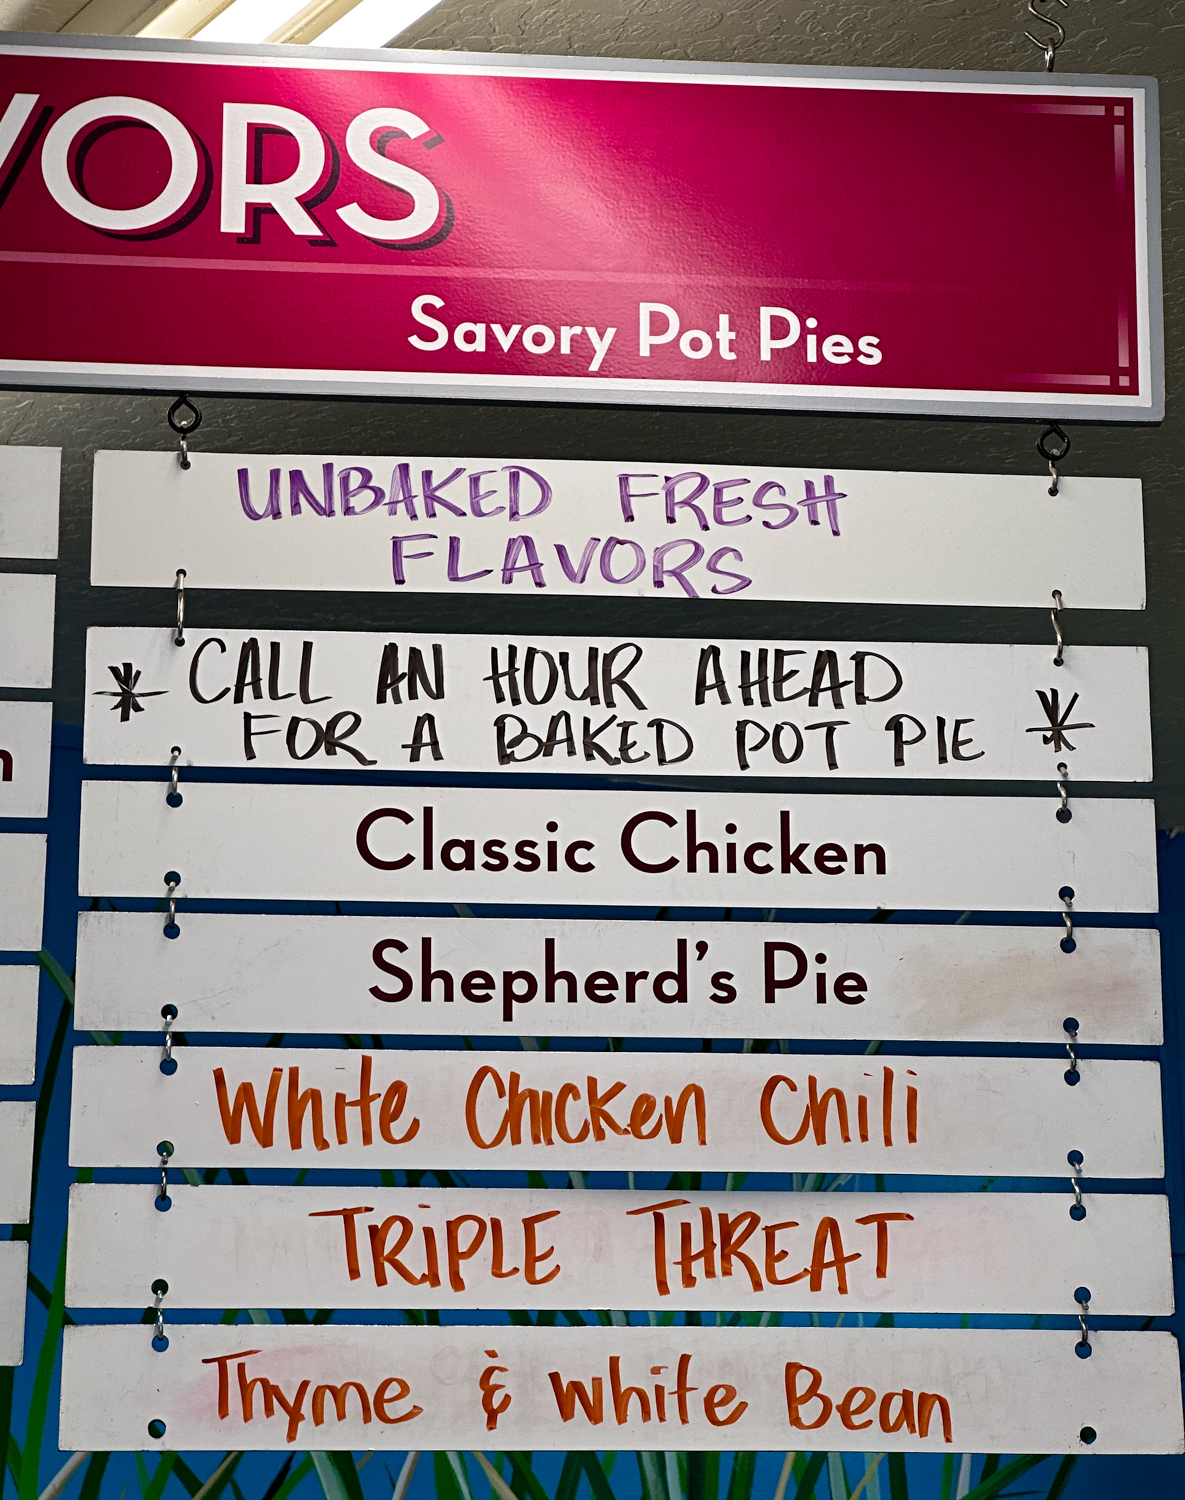 VORS
Savory Pot Pies
UNBAKED FRESH
FLAVORS
* CALL AN HOUR AHEAD
FOR A BAKED POT PIE *
Classic Chicken
Shepherd's Pie
White Chicken Chili
TRiPLE THREAT
Thyme & White Bean